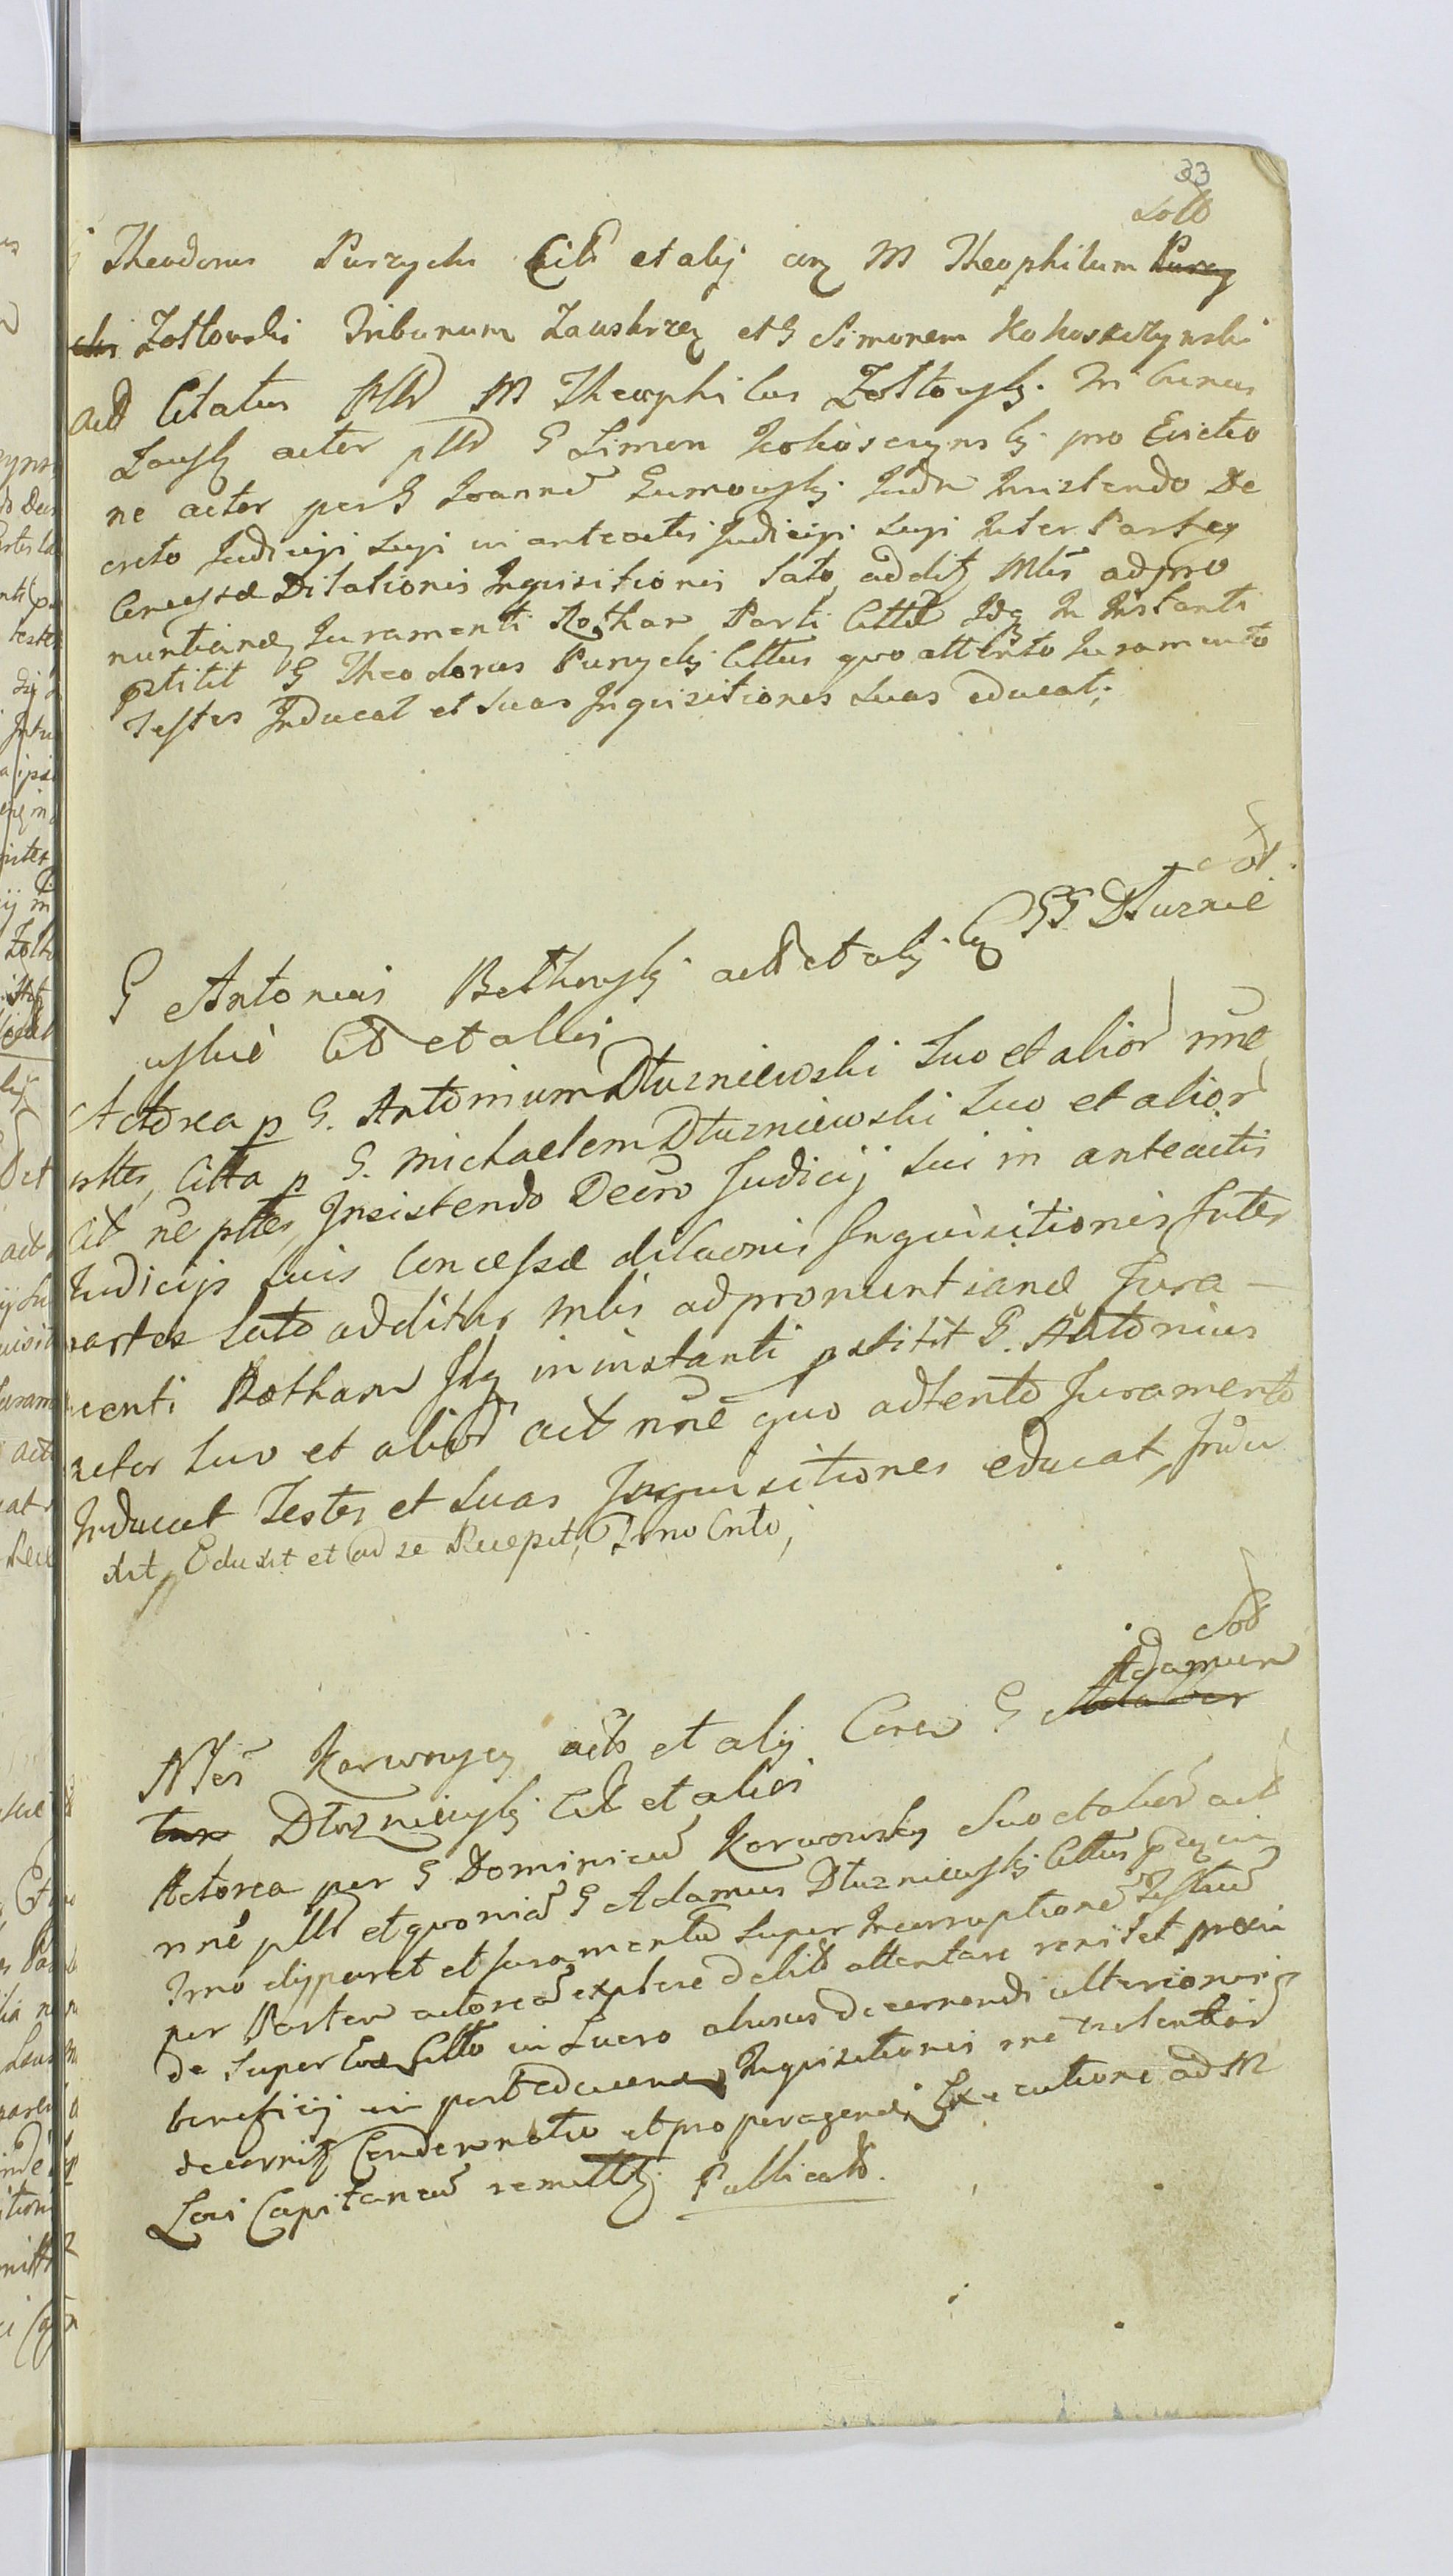 33
Theodorus Purzycki Citt et alij cum M Theophilum Purzy
cki Zołtowski Tribunum Zawskrzen et G Simonem Kokoszczynski
act Citatus ptt M Theophilus Zołtowski Tribunus
Zausk actor ptt G Simon Kokoszczynski pro Evictio
ne actor per G Joannem Gumowski Judm Insistendo De
creto Judicij sui in anteactis Judicijs suis Inter Partes
Concessae Dilationis Inquisitionis lato additur Mlis ad pro
nuntiand Juramenti Rotham Parti Cittae Idq In Instanti
pstitit G Theodorus Purzycki Cittus quo attento Juramento
Testes Inducat et suas Inquisitiones suas educat;
G Antonius Bethowski act et alij Cum GG Dłuznie
wskie Citt et alios
Actorea p G. Antonium Dłuzniewski suo et alior nne
ptte, Citta p G. Michaelem Dłuzniewski suo et alior
cit ne ptte, Insistendo Decro Judicij sui in anteactis
Judicijs suis Concessae dilaonis Inquisitionis Inter
partes lato additur Mlis ad pronuntiand Jura-
menti Rotham Idq in instanti pstitit G. Antonius
actor suo et alior act nne quo adtento Juramento
Inducat Testes et suas Inquisitiones educat, Indu
xit, Eduxit et ad se Recepit, Trno Cnto,
Adamum
Nles Karwowscy act et alij Cum G
Dłuzniewski Citt et alios
Actorea per G Dominicum Karwowski suo et alior act
nne ptt et quoniam G Adamus Dłuzniewski Cittus
Trno comparet et Juramentum super Incorruptione Testium
per Partem actoream explere debit attentare renitet proin
de super Eod Citto in Lucro abusus decernendi ulterioris
beneficij in part educend Inquisitionis ne tentior
decernitur Condemnatio et pro peragend Executione ad M
Loci Capitaneum remittitur Publicat.